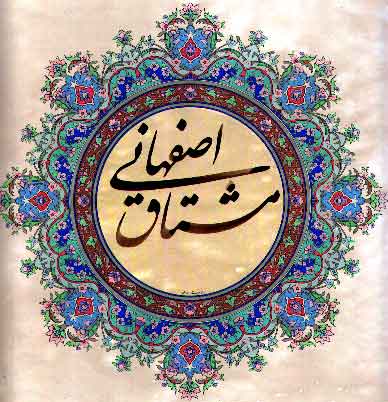 مشتاق
اصفهانی